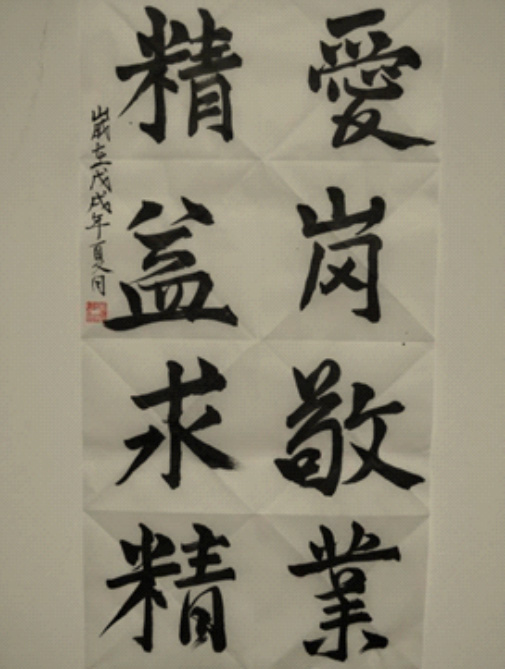 愛岗敬業
精益求精
歲在戊戌年夏月